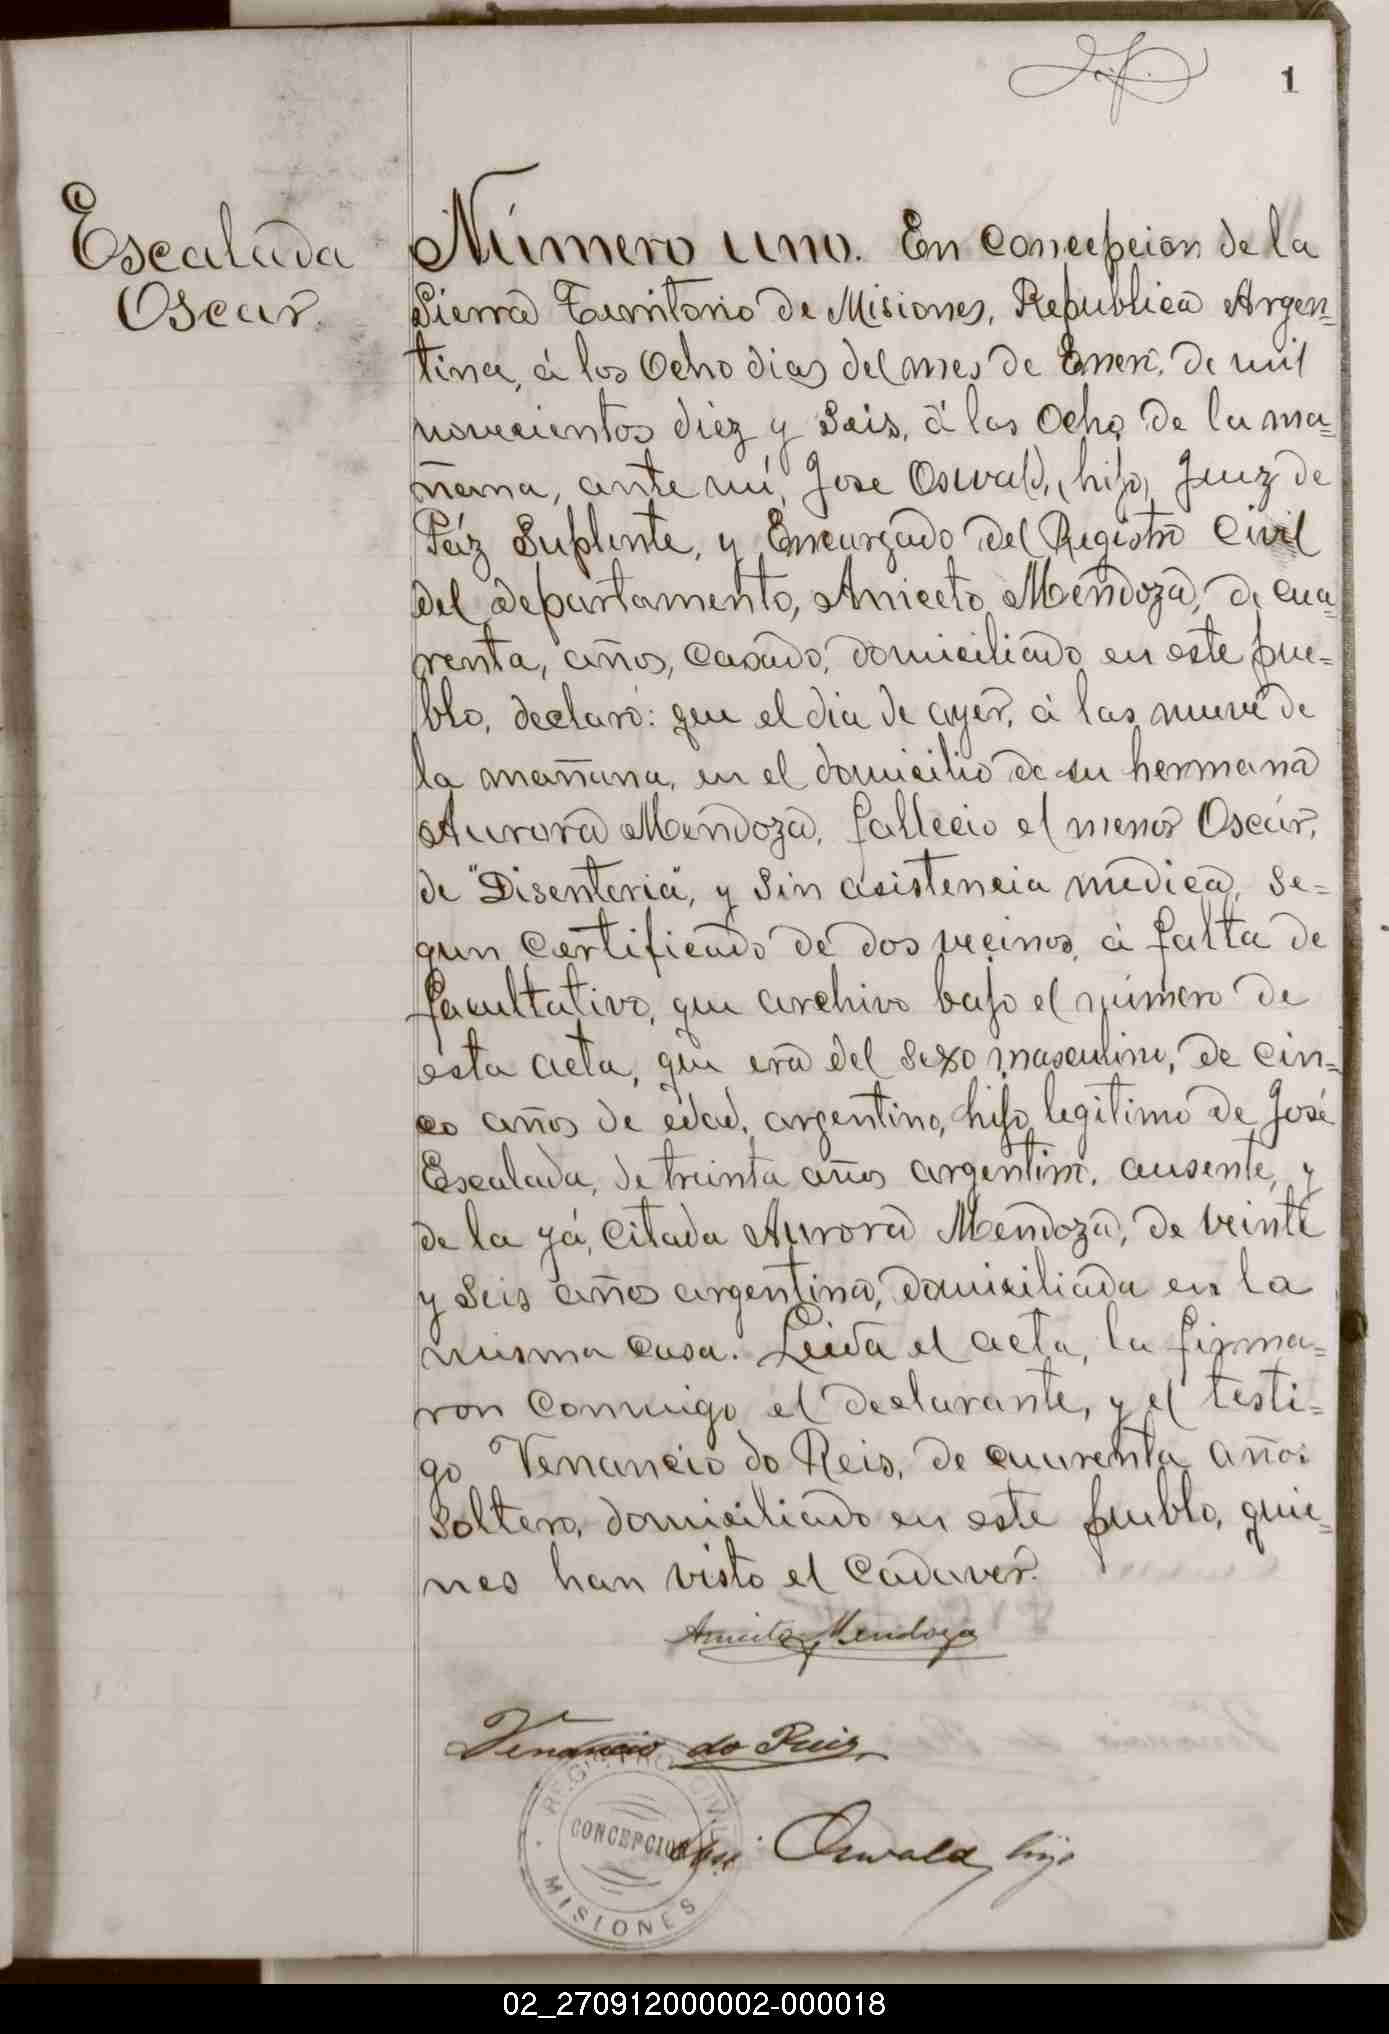 1
Escalada
Oscar.
Número uno. En Concepcion de la
Sierra Territorio de Misiones, Republica Argen=
tina, á los Ocho dias del mes de Enero, de mil
novecientos diez y seis, á las Ocho de la ma=
ñana, ante mí, Jose Oswald, (hijo) Juez de
Páz Suplente, y Encargado del Registro Civil
del departamento, Aniceto Mendoza, de cua=
renta, años, casado, domiciliado en este pue=
blo, declaró: que el dia de ayer, á las nueve de
la mañana, en el domicilio de su hermana
Aurora Mendoza, fallecio el menor Oscár,
de "Disenteria", y sin asistencia medica, se=
gun certificado de dos vecinos, á falta de
facultativo, que archivo bajo el número de
esta acta, que era del sexo masculino, de cin=
co años de edad, argentino, hijo legitimo de José
Escalada, de treinta años argentino, ausente, y
de la yá, citada Aurora Mendoza, de veinte
y seis años argentina, domiciliada en la
misma casa. Leida el acta, la firma=
ron conmigo el declarante, y el testi=
go Venancio do Reis, de cuarenta años
soltero, domiciliado en este pueblo, quie=
nes han visto el cadaver.
Aniceto Mendoza
Venancio do Reis
REGISTRO CIVIL
CONCEPCION
MISIONES
José Oswald, hijo
02_270912000002-000018